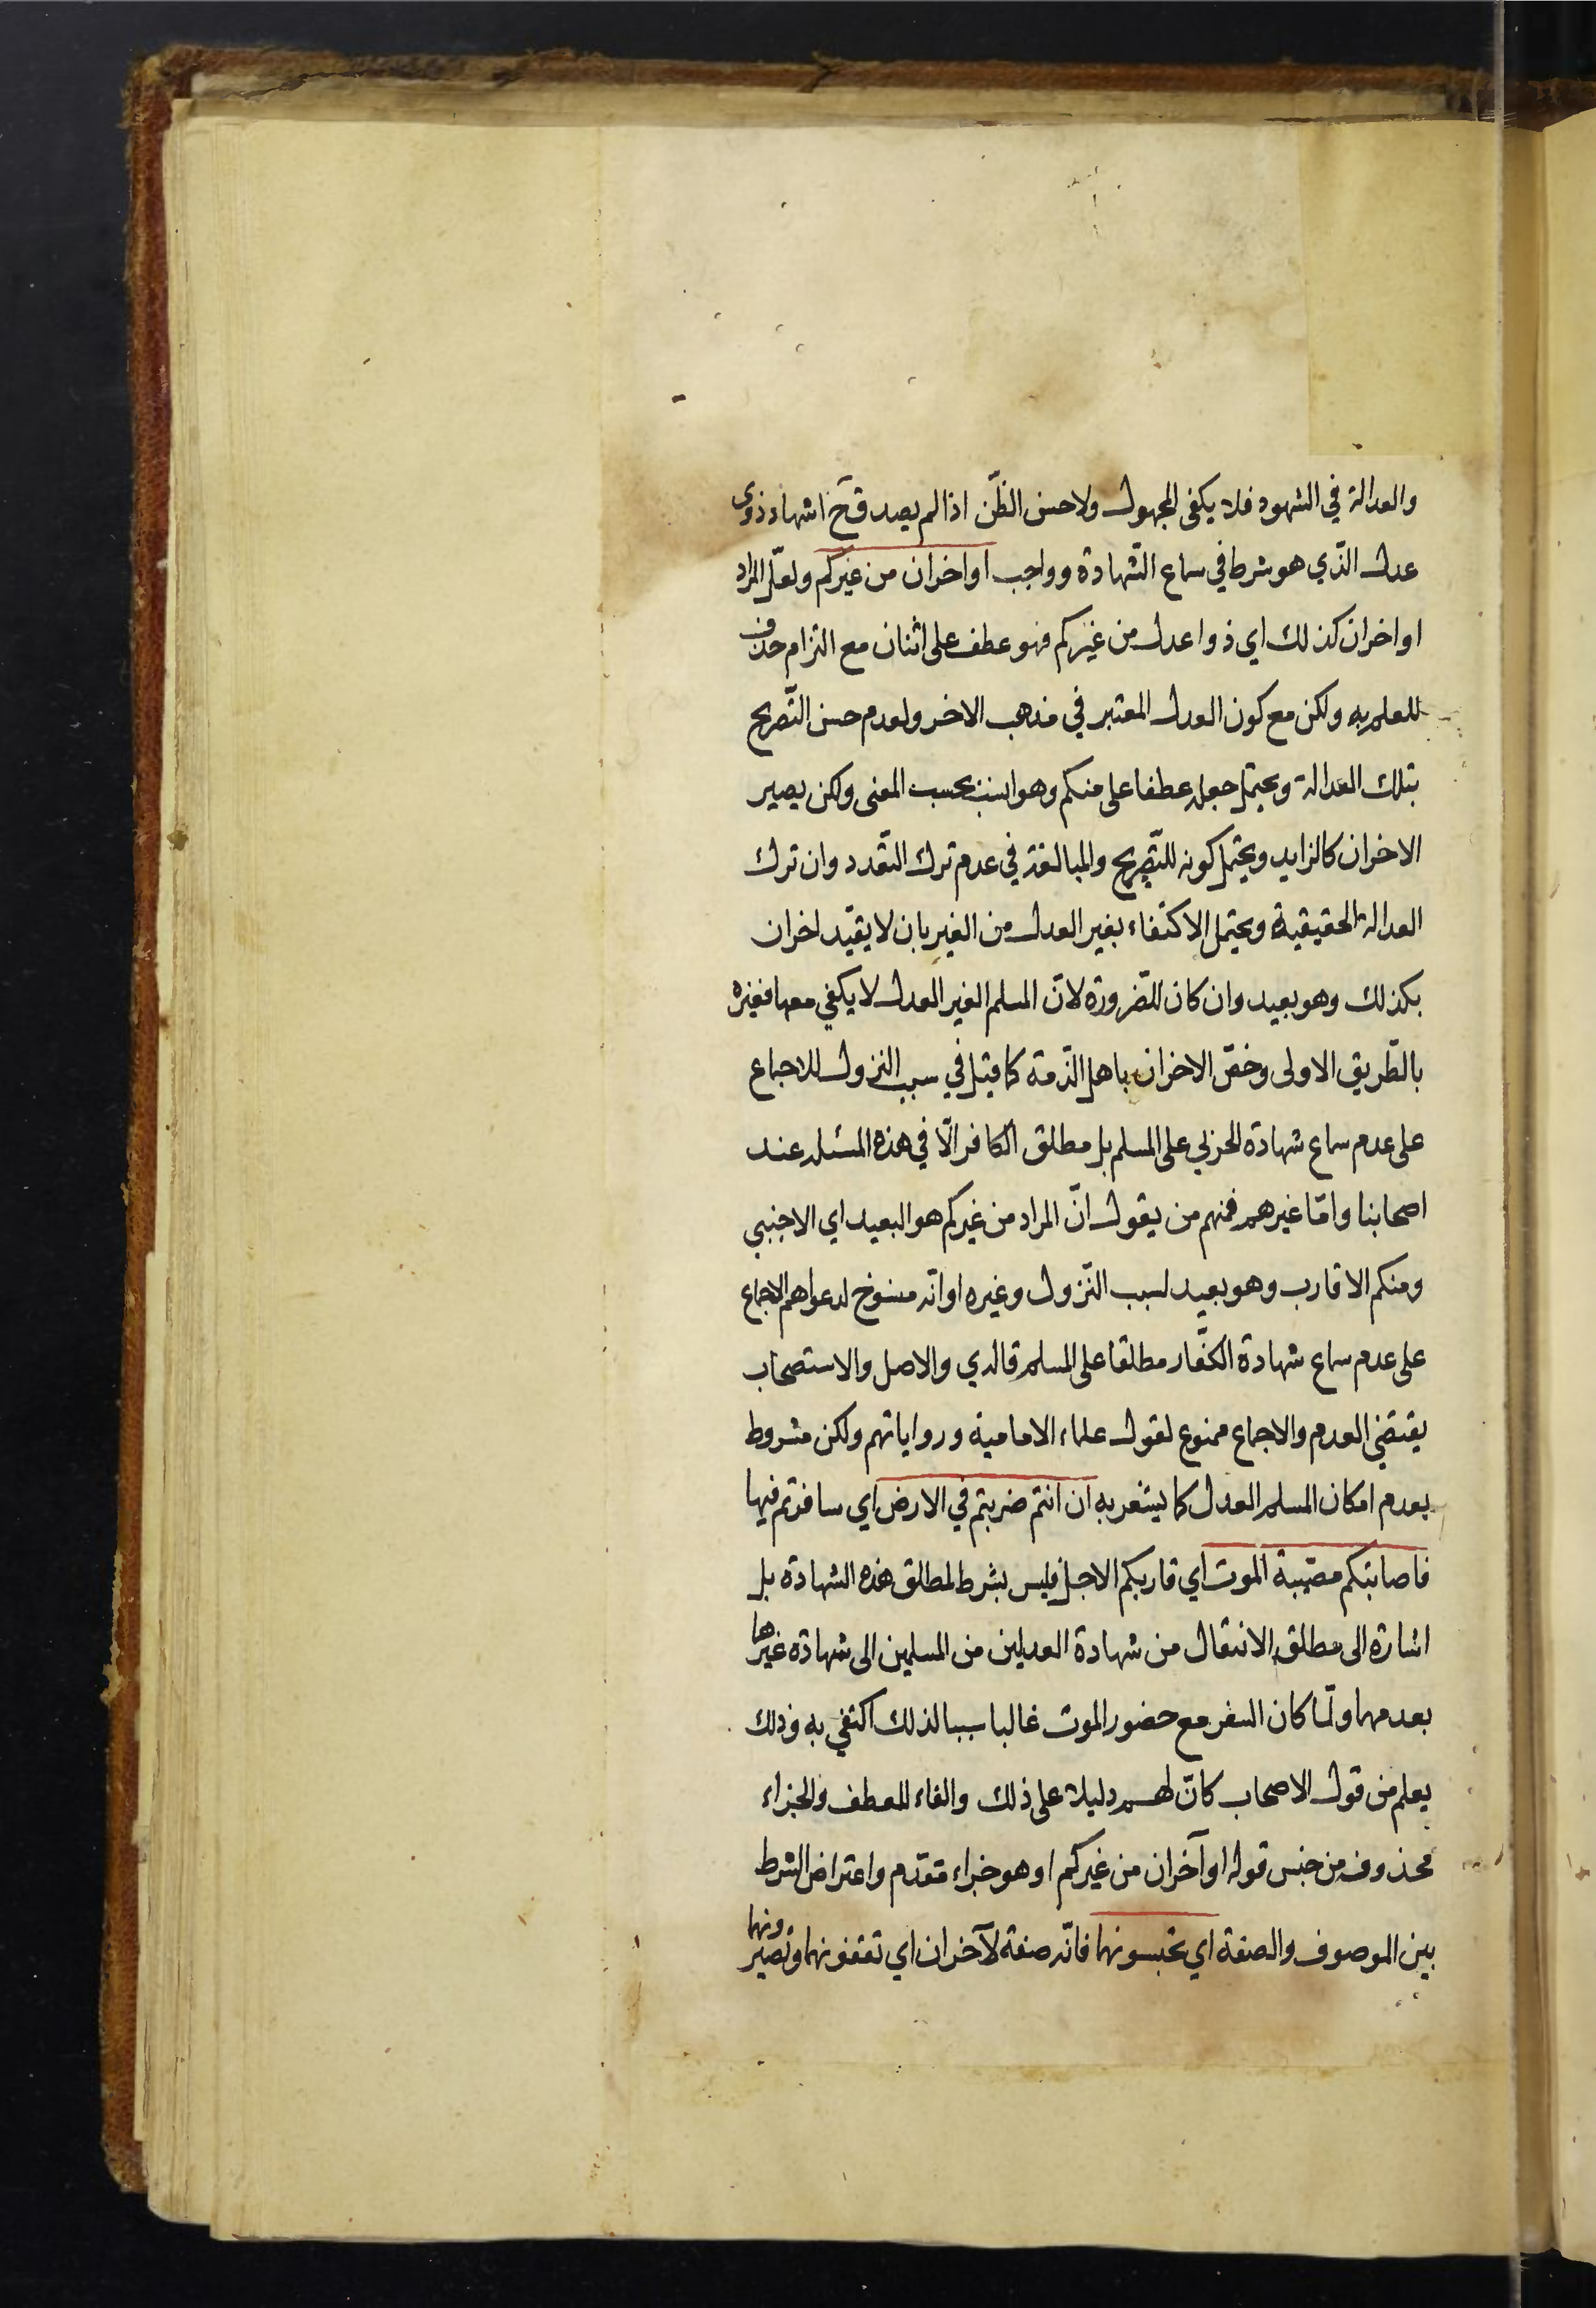 والعدالة في الشهود فلا يكفى المجهول ولا حسن الظّن اذا لم يصدق ح اشهاد ذوى
عدل الّذي هو شرط في سماع الشّهادة وواجب او اخران من غيركم ولعلّ المراد
او اخران كذلك اي ذوا عدل من غيركم فهو عطف على اثنان مع التزام حذف
للعلم به ولكن مع كون العدل المعتبر في مذهب الاخر ولعدم حسن التّصريح
بتلك العدالة ويحتمل جعله عطفا على منكم وهو انسب بحسب المعنى ولكن يصير
الاخران كالزايد ويحتمل كونه للتّصريح والمبالغة في عدم ترك التعّدد وان ترك
العدالة الحقيقية ويحتمل الاكتفاء بغير العدل من الغير بان لا يقيّد اخران
بكذلك وهو بعيد وان كان للضّرورة لانّ المسلم الغير العدل لا يكفي معها فغيره
بالطّريق الاولى وخصّ الاخران باهل الذّمة كما قيل في سبب النزول للاجماع
على عدم سماع شهادة الحربي على المسلم بل مطلق الكافر الّا في هذه المسئله عند
اصحابنا وامّا غيرهم فمنهم من يقول انّ المراد من غيركم هو البعيد اي الاجنبي
ومنكم الاقارب وهو بعيد لسبب النّزول وغيره او انّه منسوخ لدعواهم الاجماع
على عدم سماع شهادة الكفّار مطلقا على المسلم قال دي والاصل والاستصحاب
يقتضي العدم والاجماع ممنوع لقول علماء الامامية ورواياتهم ولكن مشروط
بعدم امكان المسلم العدل كما يشعر به ان انتم ضربتم في الارض اي سافرتم فيها
فاصابتكم مصيبة الموت اي قاربكم الاجل فليس بشرط لمطلق هذه الشهادة بل
اشارة الى مطلق الانتقال من شهادة العدلين من المسلمين الى شهادة غيرها
بعدمهما ولمّا كان السفر مع حضور الموت غالبا سببا لذلك اكتفي به وذلك
يعلم من قول الاصحاب كانّ لهم دليلا على ذلك والفاء للعطف والجزاء
محذوف من جنس قوله او آخران من غيركم او هو جزاء مقدّم واعتراض الشرط
بين الموصوف والصفة اي تحبسونهما فانّه صفة لآخران اي تقفونهما وتصيرونهما